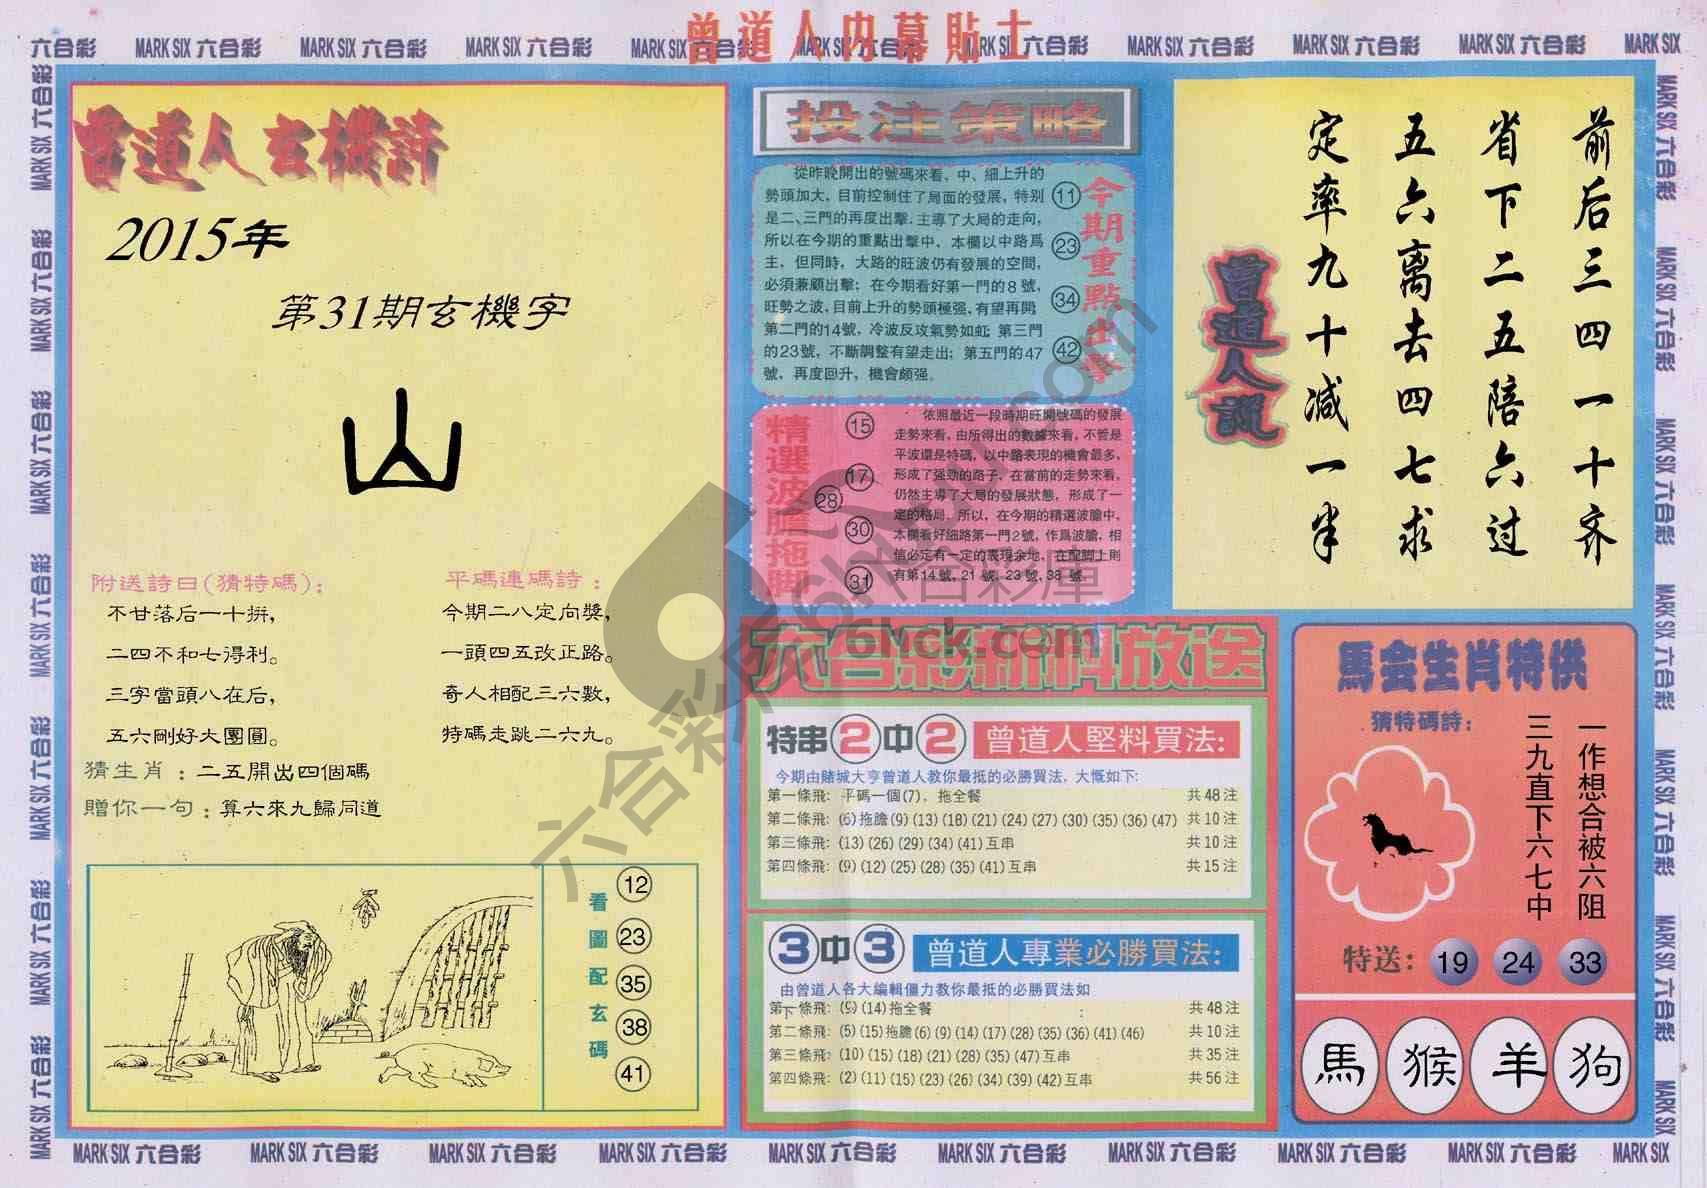 曾道人内幕貼士
六合彩 MARK SIX 六合彩 MARK SIX 六合彩 MARK SIX 六合彩 MARK SIX 六合彩 MARK SIX 六合彩 MARK SIX 六合彩 MARK SIX 六合彩 MARK SIX 六合彩 MARK SIX 六合彩 MARK SIX
曾道人玄機詩
2015年
第31期玄機字
山
附送詩曰(猜特碼):
不甘落后一十拼,
二四不和七得利。
三字當頭八在后,
五六剛好大團圓。
平碼連碼詩:
今期二八定向獎,
一頭四五改正路。
奇人相配三六數,
特碼走跳二六九。
猜生肖:二五開出四個碼
贈你一句:算六來九歸同道
看圖配玄碼
12
23
35
38
41
投注策略
從昨晚開出的號碼來看、中、細上升的
勢頭加大,目前控制住了局面的發展,特别
是二、三門的再度出擊.主導了大局的走向,
所以在今期的重點出擊中,本欄以中路爲
主,但同時,大路的旺波仍有發展的空間,
必須兼顧出擊;在今期看好第一門的8號,
旺勢之波,目前上升的勢頭極强,有望再開;
第二門的14號,冷波反攻氣勢如虹;第三門
的23號,不斷調整有望走出;第五門的47
號,再度回升,機會頗强。
11
23
34
42
今期重點出擊
精選波膽拖脚
15
17
28
30
31
依照最近一段時期旺開號碼的發展
走勢來看,由所得出的數據來看,不管是
平波還是特碼,以中路表現的機會最多,
形成了强勁的路子,在當前的走勢來看,
仍然主導了大局的發展狀態,形成了一
定的格局.所以,在今期的精選波膽中,
本欄看好細路第一門2號,作爲波膽,相
信必定有一定的表現余地,在配脚上則
有第14號,21號,23號,38號
前后三四一十齐
省下二五陪六过
五六离去四七求
定率九十减一半
曾道人説
六合彩新料放送
特串2中2 曾道人堅料買法:
今期由賭城大亨曾道人教你最抵的必勝買法,大慨如下:
第一條飛: 平碼一個(7),拖全餐 共48注
第二條飛: (6)拖膽(9)(13)(18)(21)(24)(27)(30)(35)(36)(47) 共10注
第三條飛: (13)(26)(29)(34)(41)互串 共10注
第四條飛: (9)(12)(25)(28)(35)(41)互串 共15注
3中3 曾道人專業必勝買法:
由曾道人各大編輯僵力教你最抵的必勝買法如
下:
第一條飛: (9)(14)拖全餐 共48注
第二條飛: (5)(15)拖膽(6)(9)(14)(17)(28)(35)(36)(41)(46) 共10注
第三條飛: (10)(15)(18)(21)(28)(35)(47)互串 共35注
第四條飛: (2)(11)(15)(23)(26)(34)(39)(42)互串 共56注
馬会生肖特供
猜特碼詩:
一作想合被六阻
三九直下六七中
特送: 19 24 33
馬 猴 羊 狗
六合彩库 6hck.com
六合彩庫
6hck.com
MARK SIX 六合彩 MARK SIX 六合彩 MARK SIX 六合彩 MARK SIX 六合彩 MARK SIX 六合彩 MARK SIX 六合彩 MARK SIX 六合彩 MARK SIX 六合彩 MARK SIX 六合彩 MARK SIX